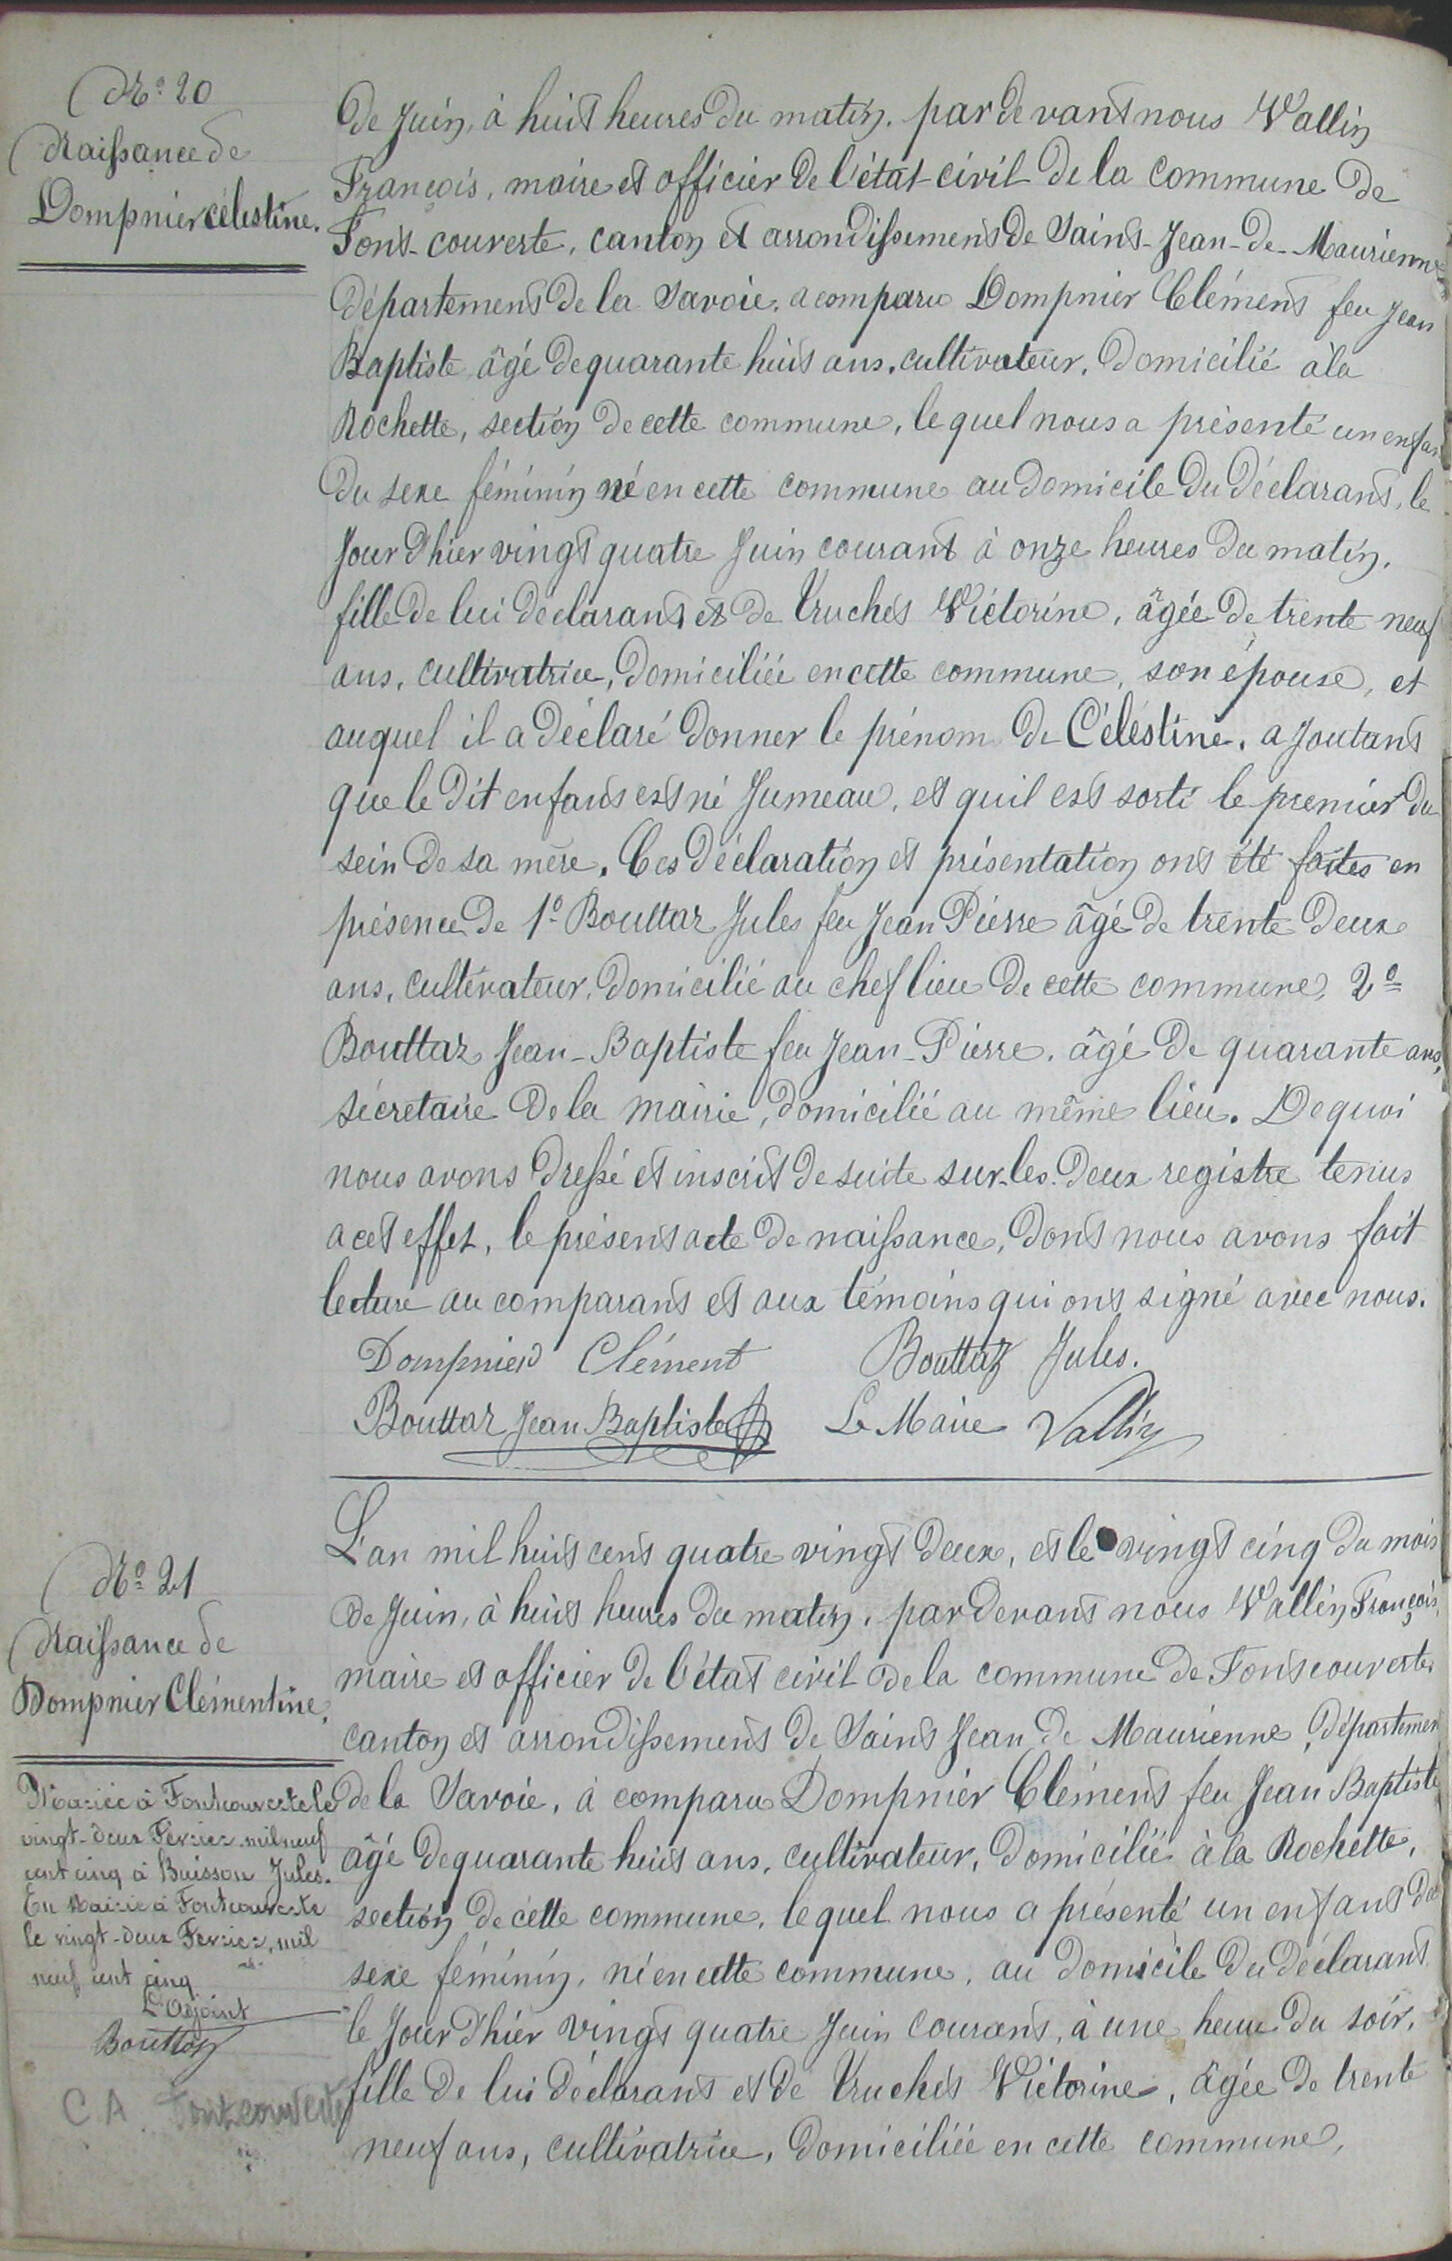 N° 20
Naissance de
Dompnier célestine.
de Juin, à huit heures du matin. par devant nous Vallin
François, maire et officier de l'état-civil de la commune de
Font-couverte, canton et arrondissement de Saint-Jean-de-Maurienne
département de la Savoie. a comparu Dompnier Clément feu Jean
Baptiste âgé de quarante huit ans, cultivateur, domicilié à la
Rochette, section de cette commune, le quel nous a présenté un enfan
du sexe féminin né en cette commune au domicile du déclarant, le
Jour d'hier vingt quatre Juin courant à onze heures du matin,
fille de lui déclarant et de Truchet Victorine, âgée de trente neuf
ans, cultivatrice, domiciliée en cette commune, son épouse, et
auquel il a déclaré donner le prénom de Céléstine, a Joutant
que le dit enfant est né Jumeau, et quil est sorti le premier du
sein de sa mère. Ces déclaration et présentation ont été faites en
présence de 1° Bouttaz Jules feu Jean Pierre âgé de trente deux
ans, cultivateur, domicilié au chef lieu de cette commune, 2°
Bouttaz Jean-Baptiste feu Jean-Pierre, âgé de quarante ans,
sécretaire de la mairie, domicilié au même lieu. De quoi
nous avons dressé et inscrit de suite sur-les-deux registre tenus
a cet effet, le présent acte de naissance, dont nous avons fait
lecture au comparant et aux témoins qui ont signé avec nous.
Dompnier Clément Bouttaz Jules.
Bouttaz Jean Baptiste Le Maire Vallin
N° 21
Naissance de
Dompnier Clémentine.
Mariée à Fontcouverte le
vingt-deux Février mil neuf
cent cinq à Buisson Jules.
En Mairie à Fontcouverte
le vingt-deux Février, mil
neuf cent cinq
L'Adjoint
Bouttaz
C.A. Fontcouverte
L'an mil huit cent quatre vingt deux, et le vingt cinq du mois
de Juin, à huit heures du matin, par devant nous Vallin François,
maire et officier de l'état civil de la commune de Fontcouverte,
canton et arrondissement de Saint Jean de Maurienne, départemen
de la Savoie, à comparu Dompnier Clément feu Jean Baptiste
âgé de quarante huit ans, cultivateur, domicilié à la Rochette,
section de cette commune, lequel nous a présenté un enfant du
sexe féminin, né en cette commune, au domicile du déclarant
le Jour d'hier vingt quatre Juin courant, à une heure du soir,
fille de lui déclarant et de Truchet Victorine, âgée de trente
neuf ans, cultivatrice, domiciliée en cette commune,